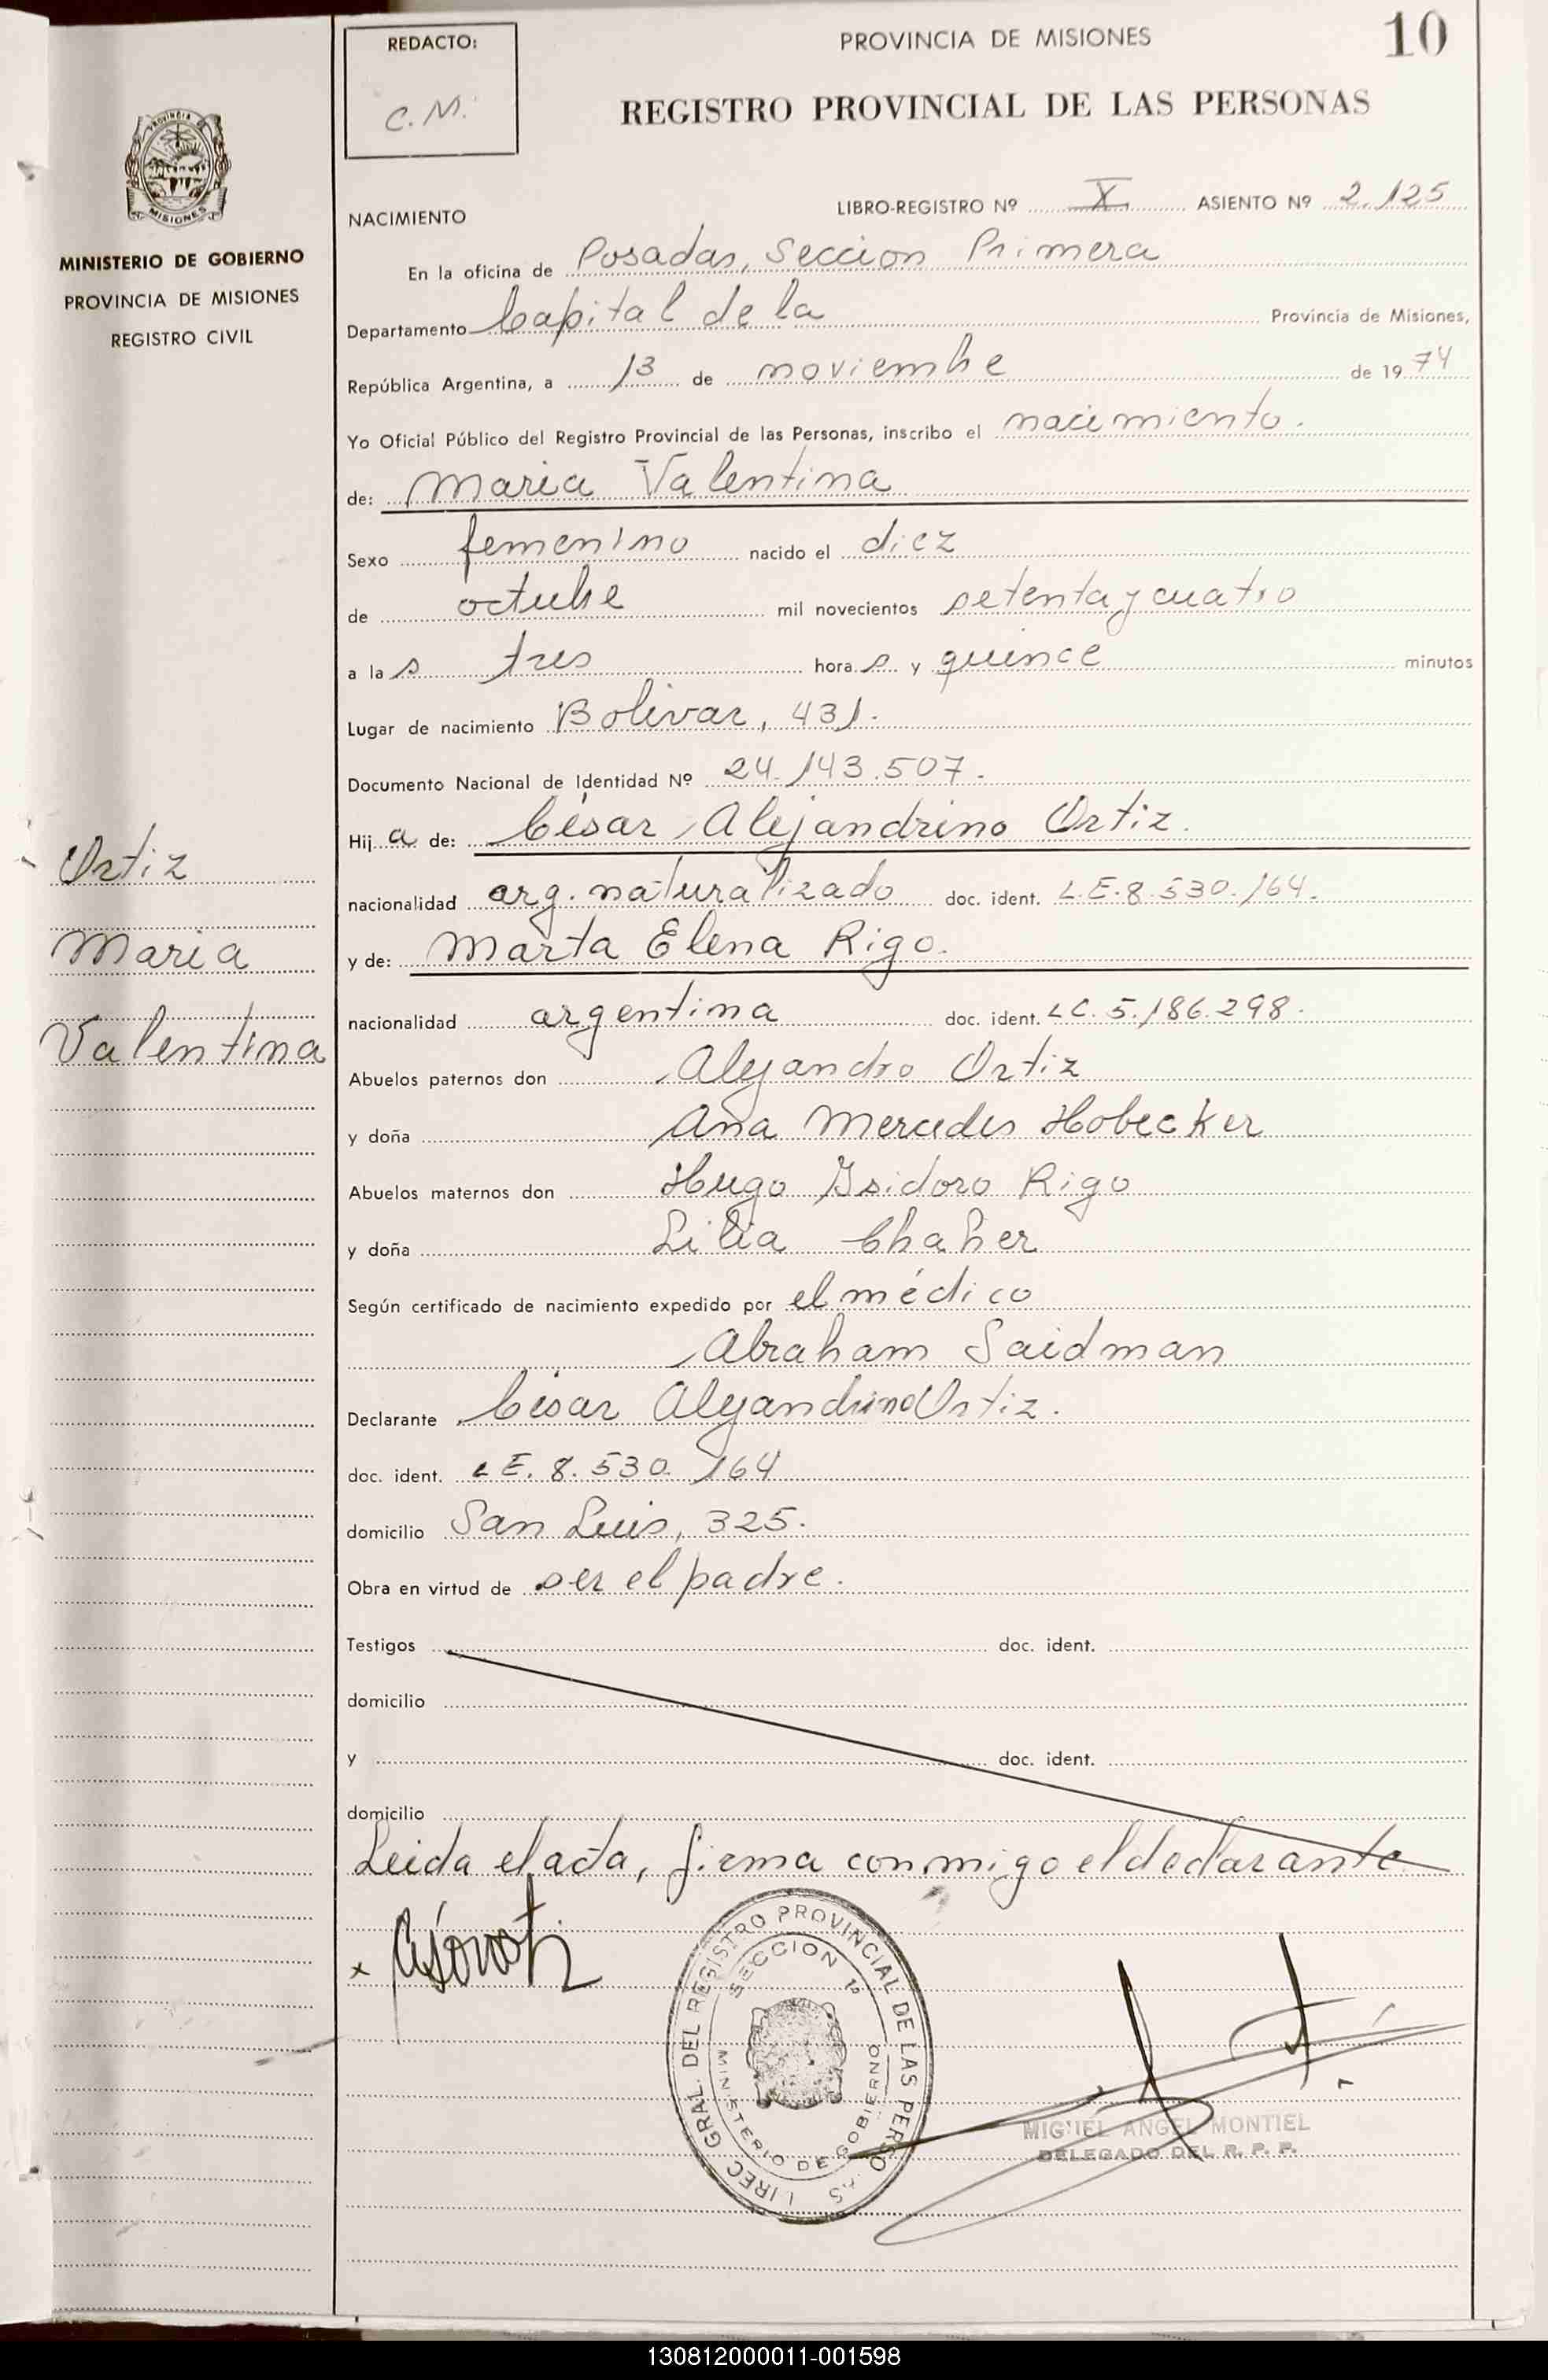 REDACTO:
C.M.
PROVINCIA DE MISIONES
10
REGISTRO PROVINCIAL DE LAS PERSONAS
MISIONES
MINISTERIO DE GOBIERNO
PROVINCIA DE MISIONES
REGISTRO CIVIL
NACIMIENTO
LIBRO-REGISTRO Nº X ASIENTO Nº 2.125
En la oficina de Posadas, Seccion Primera
Departamento Capital de la Provincia de Misiones,
República Argentina, a 13 de noviembre de 1974
Yo Oficial Público del Registro Provincial de las Personas, inscribo el nacimiento.
de: Maria Valentina
Sexo femenino nacido el diez
de octubre mil novecientos setenta y cuatro
a las tres horas y quince minutos
Lugar de nacimiento Bolivar, 431.
Documento Nacional de Identidad Nº 24.143.507.
Hija de: César Alejandrino Ortiz.
nacionalidad arg. naturalizado doc. ident. L.E. 8.530.164.
y de: Marta Elena Rigo.
nacionalidad argentina doc. ident. L.C. 5.186.298.
Abuelos paternos don Alejandro Ortiz
y doña Ana Mercedes Hobecker
Abuelos maternos don Hugo Isidoro Rigo
y doña Lilia Chaher
Según certificado de nacimiento expedido por el médico
Abraham Saidman
Declarante César Alejandrino Ortiz.
doc. ident. L.E. 8.530.164
domicilio San Luis, 325.
Obra en virtud de ser el padre.
Testigos doc. ident.
domicilio
y doc. ident.
domicilio
Leida el acta, firma conmigo el declarante
Ortiz
Maria
Valentina
DIREC. GRAL. DEL REGISTRO PROVINCIAL DE LAS PERSONAS
SECCION 1ª
MINISTERIO DE GOBIERNO
MIGUEL ANGEL MONTIEL
DELEGADO DEL R. P. P.
130812000011-001598